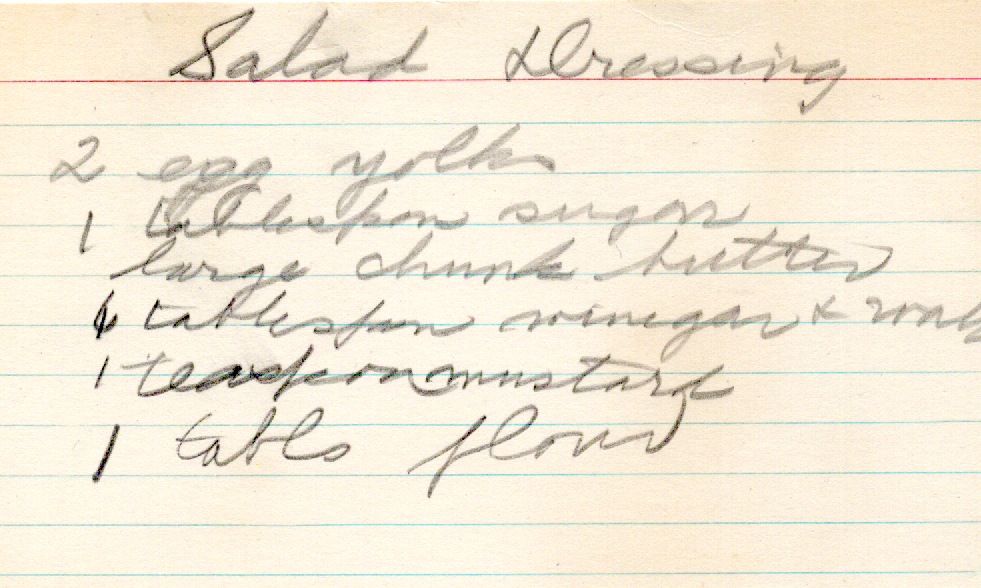 Salad Dressing
2 egg yolks
1 tablespon sugar
large chunk butter
tablespon vinegar +
1 teaspoon mustard
1 tabls flour